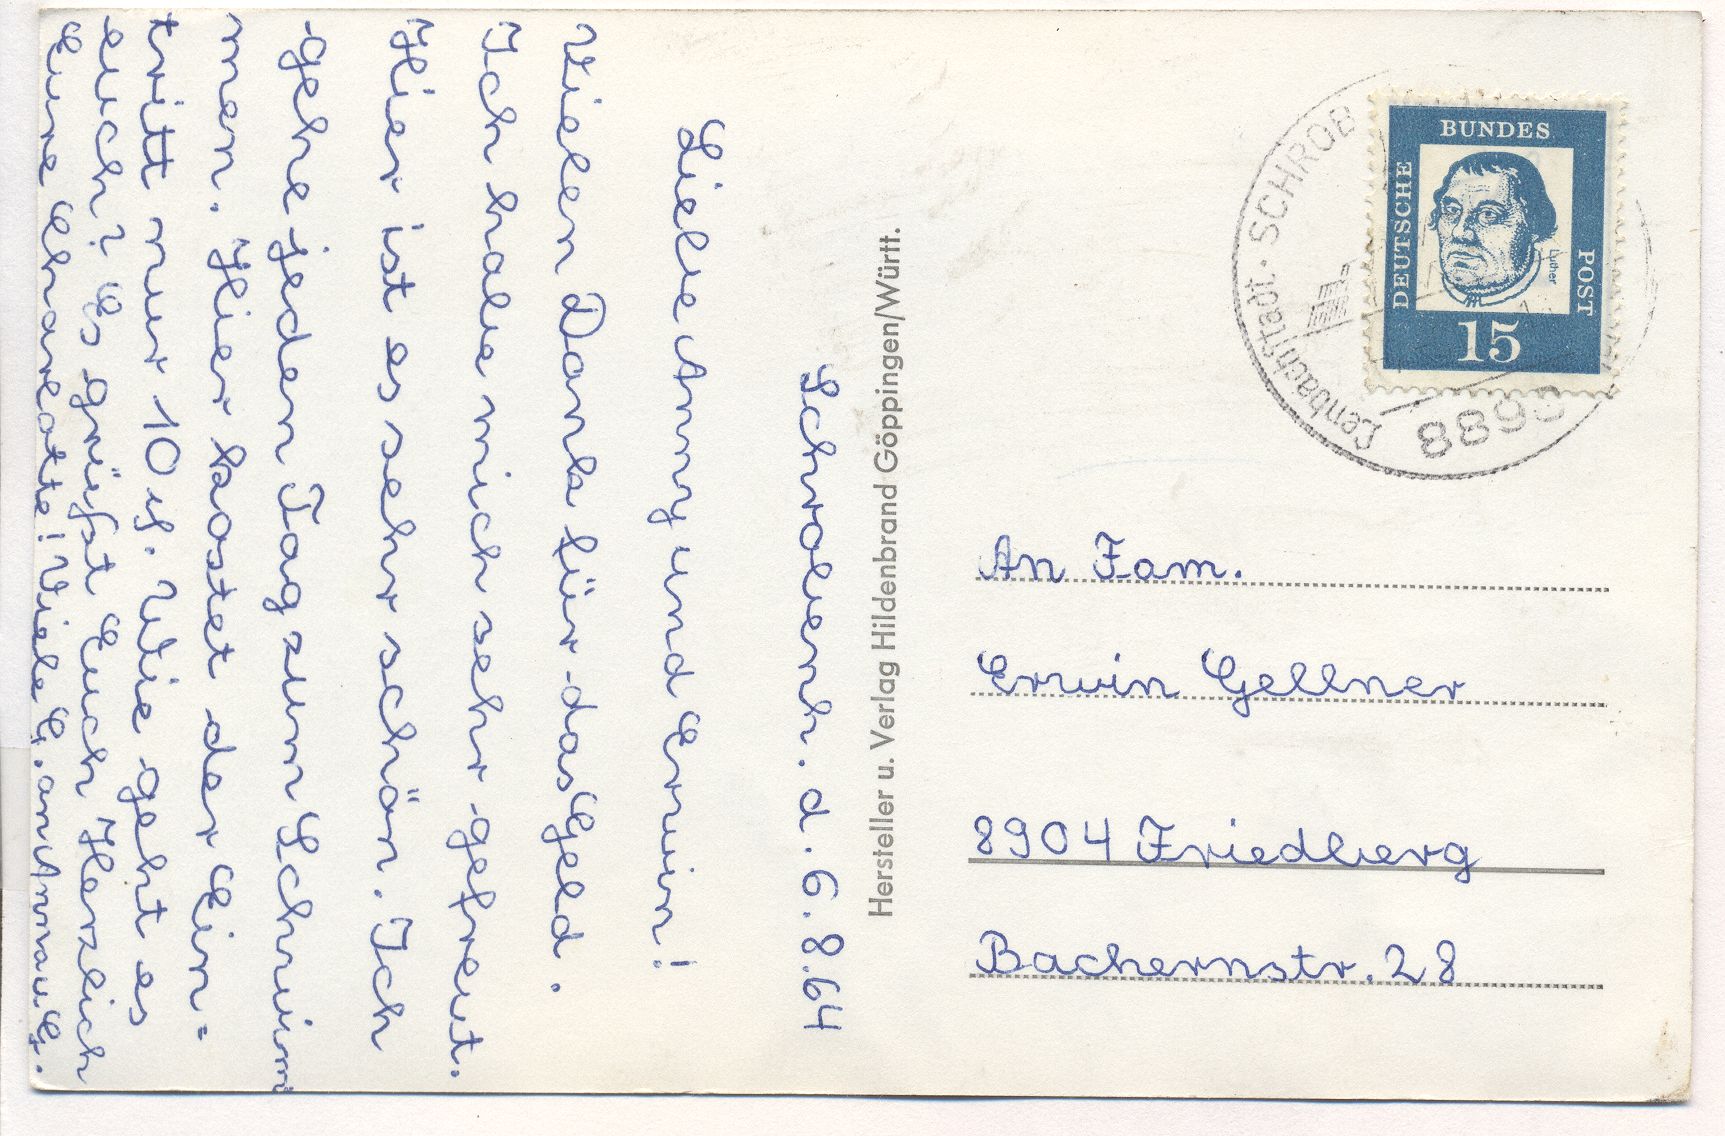 Schrobenh. d. 6.8.64
Liebe Anny und Erwin!
Vielen Dank für das Geld.
Ich habe mich sehr gefreut.
Hier ist es sehr schön. Ich
gehe jeden Tag zum Schwim
men. Hier kostet der Ein=
tritt nur 10
Wie geht es
euch? Es grüßt Euch Herzlich
Eure Annu. G.
Viele G. an
Hersteller u. Verlag Hildenbrand Göppingen/Württ.
Lenbachstadt · SCHROB
8898
DEUTSCHE
BUNDES
POST
Luther
15
An Fam.
Erwin Gellner
8904 Friedberg
Bachernstr. 28